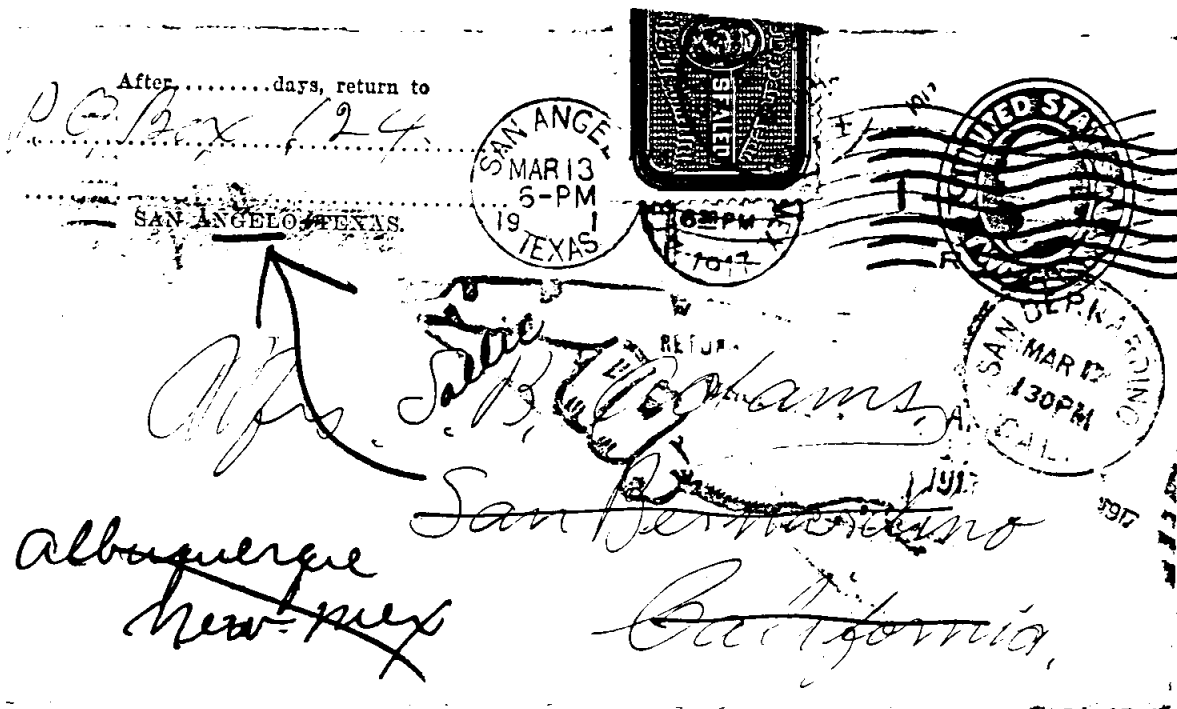 After.........days, return to
P.O. Box 124
SAN ANGELO, TEXAS.
SAN ANGEL
MAR 13
6-PM
19 1
TEXAS
SEALED
6 30 PM
MEX
1917
1917
UNITED STATES
SAN BERNARDINO
MAR 17
1 30 PM
CAL.
RETUR
Mrs. S. B. Adams,
San Bernardino
California,
1917
1917
Albuquerque
New-Mex